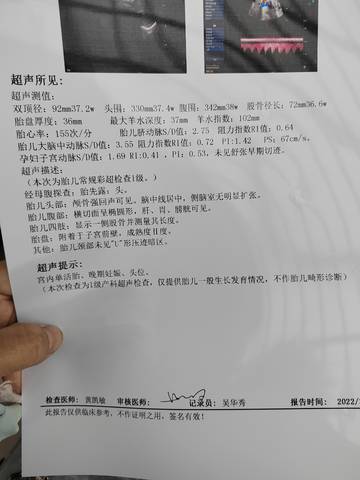 超声所见:
超声测值:
双顶径: 92mm37.2w 头围: 330mm37.4w 腹围: 342mm38w 股骨径长: 72mm36.6w
胎盘厚度: 36mm 最大羊水深度: 37mm 羊水指数: 102mm
胎心率: 155次/分 胎儿脐动脉S/D值: 2.75 阻力指数RI值: 0.64
胎儿大脑中动脉S/D值: 3.55 阻力指数RI值: 0.72 PI:1.42 PS: 67cm/s。
孕妇子宫动脉S/D值: 1.69 RI:0.41 , PI: 0.53, 未见舒张早期切迹。
超声描述:
(本次为胎儿常规彩超检查I级。)
经母腹探查: 胎先露: 头。
胎儿头部: 颅骨强回声可见, 脑中线居中, 侧脑室无明显扩张。
胎儿腹部: 横切面呈椭圆形, 肝、胃、膀胱可见。
胎儿四肢: 显示一侧股骨并测量其长度。
胎盘: 附着于子宫前壁, 成熟度II度。
其他: 胎儿颈部未见“U”形压迹暗区。
超声提示:
宫内单活胎、晚期妊娠、头位。
(本次检查为I级产科超声检查, 仅提供胎儿一般生长发育情况, 不作胎儿畸形诊断)
检查医师: 黄凯敏 审核医师: 记录员: 吴华秀 报告时间: 2022/
此报告仅供临床参考, 不作证明之用, 签名有效!